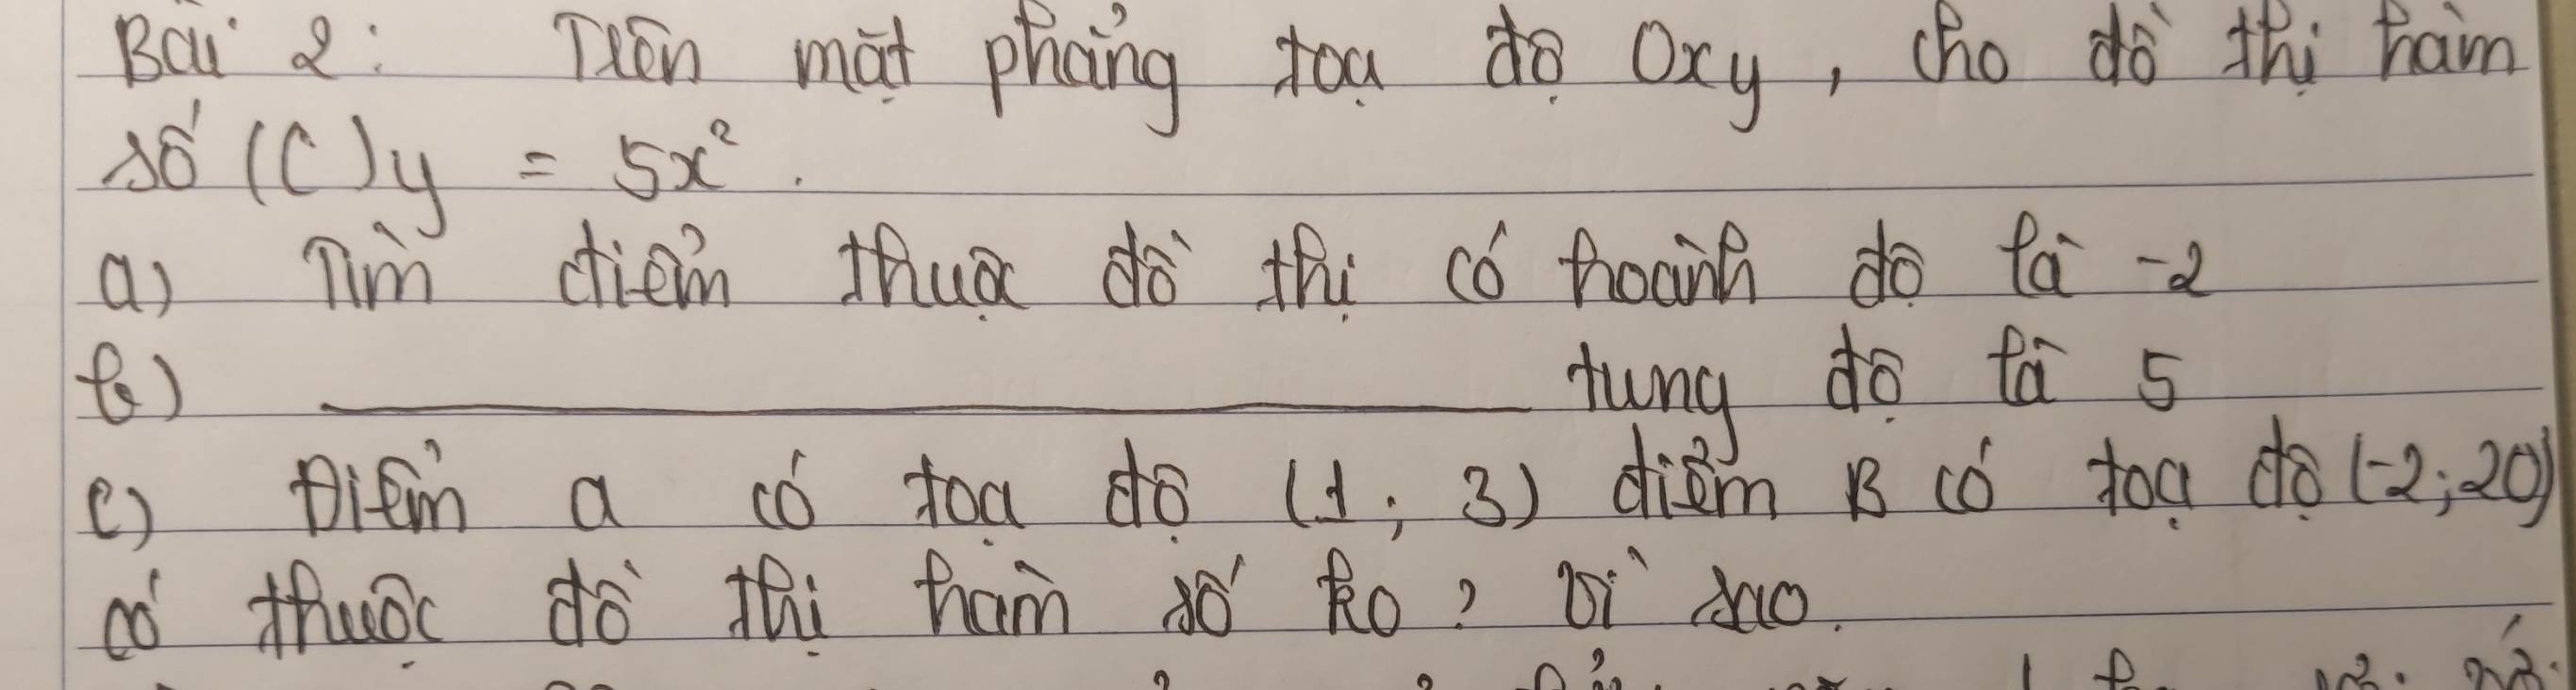 Bài 2: Trên mặt phẳng toạ độ Oxy, cho đồ thị hàm
số (C) y = 5x².
a) Tìm điểm thuộc đồ thị có hoành độ là -2
b) ____________ tung độ là 5
c) Điểm a có toạ độ (1; 3) điểm B có toạ độ (-2; 20)
có thuộc đồ thị hàm số ko? Vì sao.